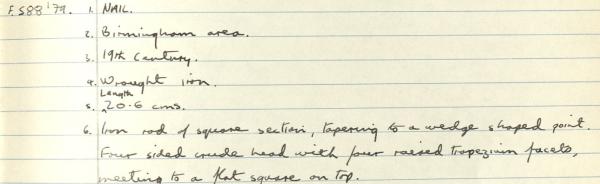 F.S88'79. 1. NAIL.
2. Birmingham area.
3. 19th Century.
4. Wrought iron.
5. Length 20.6 cms.
6. Iron rod of square section, tapering to a wedge shaped point.
Four sided crude head with four raised trapezium facets,
meeting to a flat square on top.